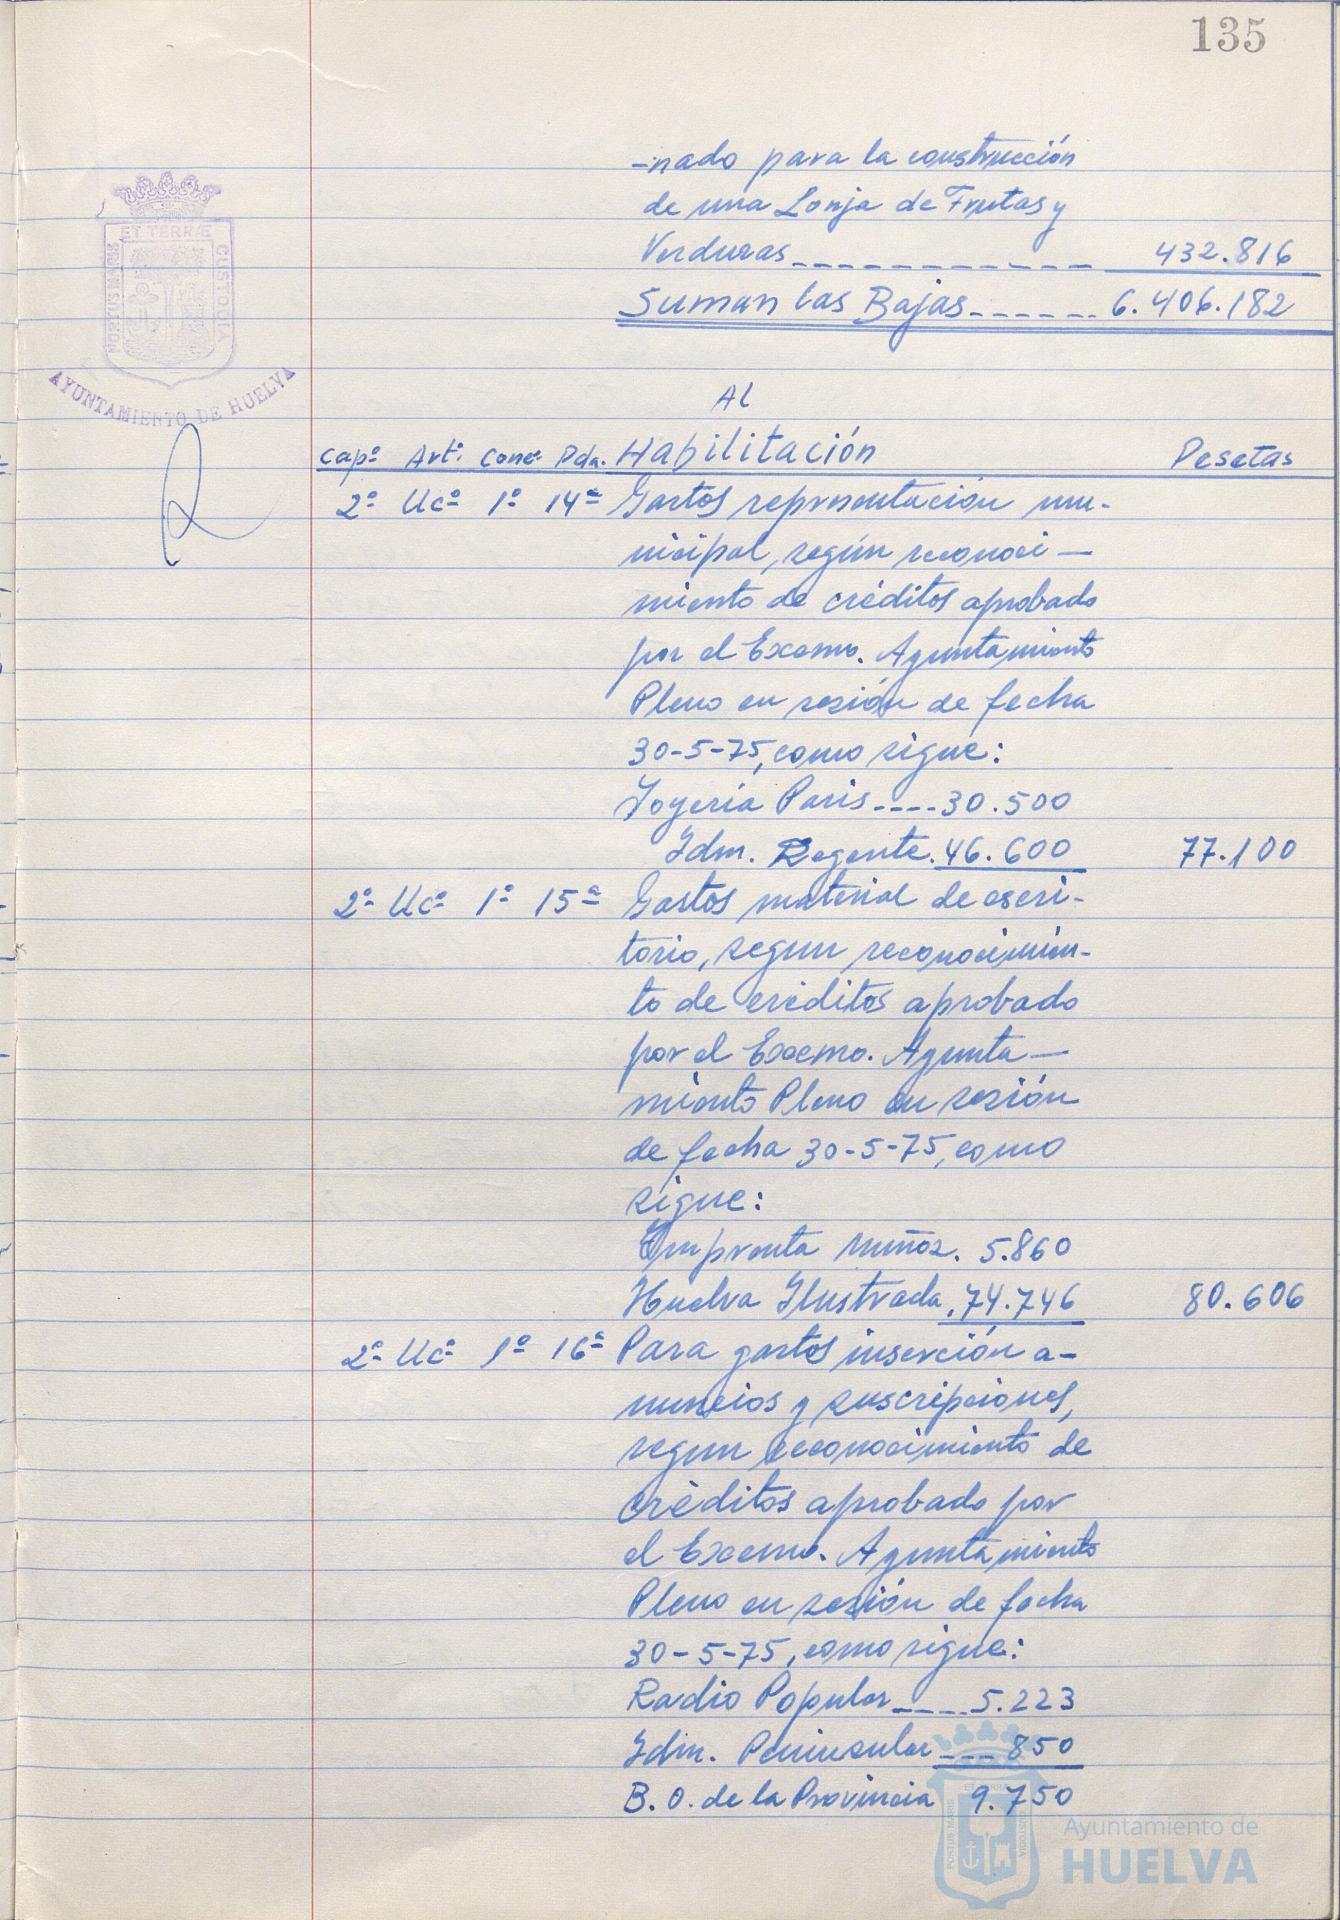 135
-nado para la construcción
de una Lonja de Frutas y
Verduras ----------- 432.816
Suman las Bajas ------ 6.406.182
ET TERRÆ
PORTUS MARIS
CUSTODIA
AYUNTAMIENTO DE HUELVA
Al
Capº Artº Concº Pda. Habilitación Pesetas
2º Ucº 1º 14ª Gastos representación mu-
nicipal, según reconoci-
miento de créditos aprobado
por el Excmo. Ayuntamiento
Pleno en sesión de fecha
30-5-75, como sigue:
Joyería Paris ---- 30.500
Idm. Regente. 46.600 77.100
2º Ucº 1º 15ª Gastos material de escri-
torio, segun reconocimien-
to de créditos aprobado
por el Excmo. Ayunta-
miento Pleno en sesión
de fecha 30-5-75, como
sigue:
Imprenta Muñoz. 5.860
Huelva Ilustrada. 74.746 80.606
2º Ucº 1º 16ª Para gastos inserción a-
nuncios y suscripciones,
segun reconocimiento de
créditos aprobado por
el Excmo. Ayuntamiento
Pleno en sesión de fecha
30-5-75, como sigue:
Radio Popular ---- 5.223
Idm. Peninsular --- 850
B. O. de la Provincia 9.750
ET TERRÆ
PORTUS MARIS
CUSTODIA
Ayuntamiento de
HUELVA